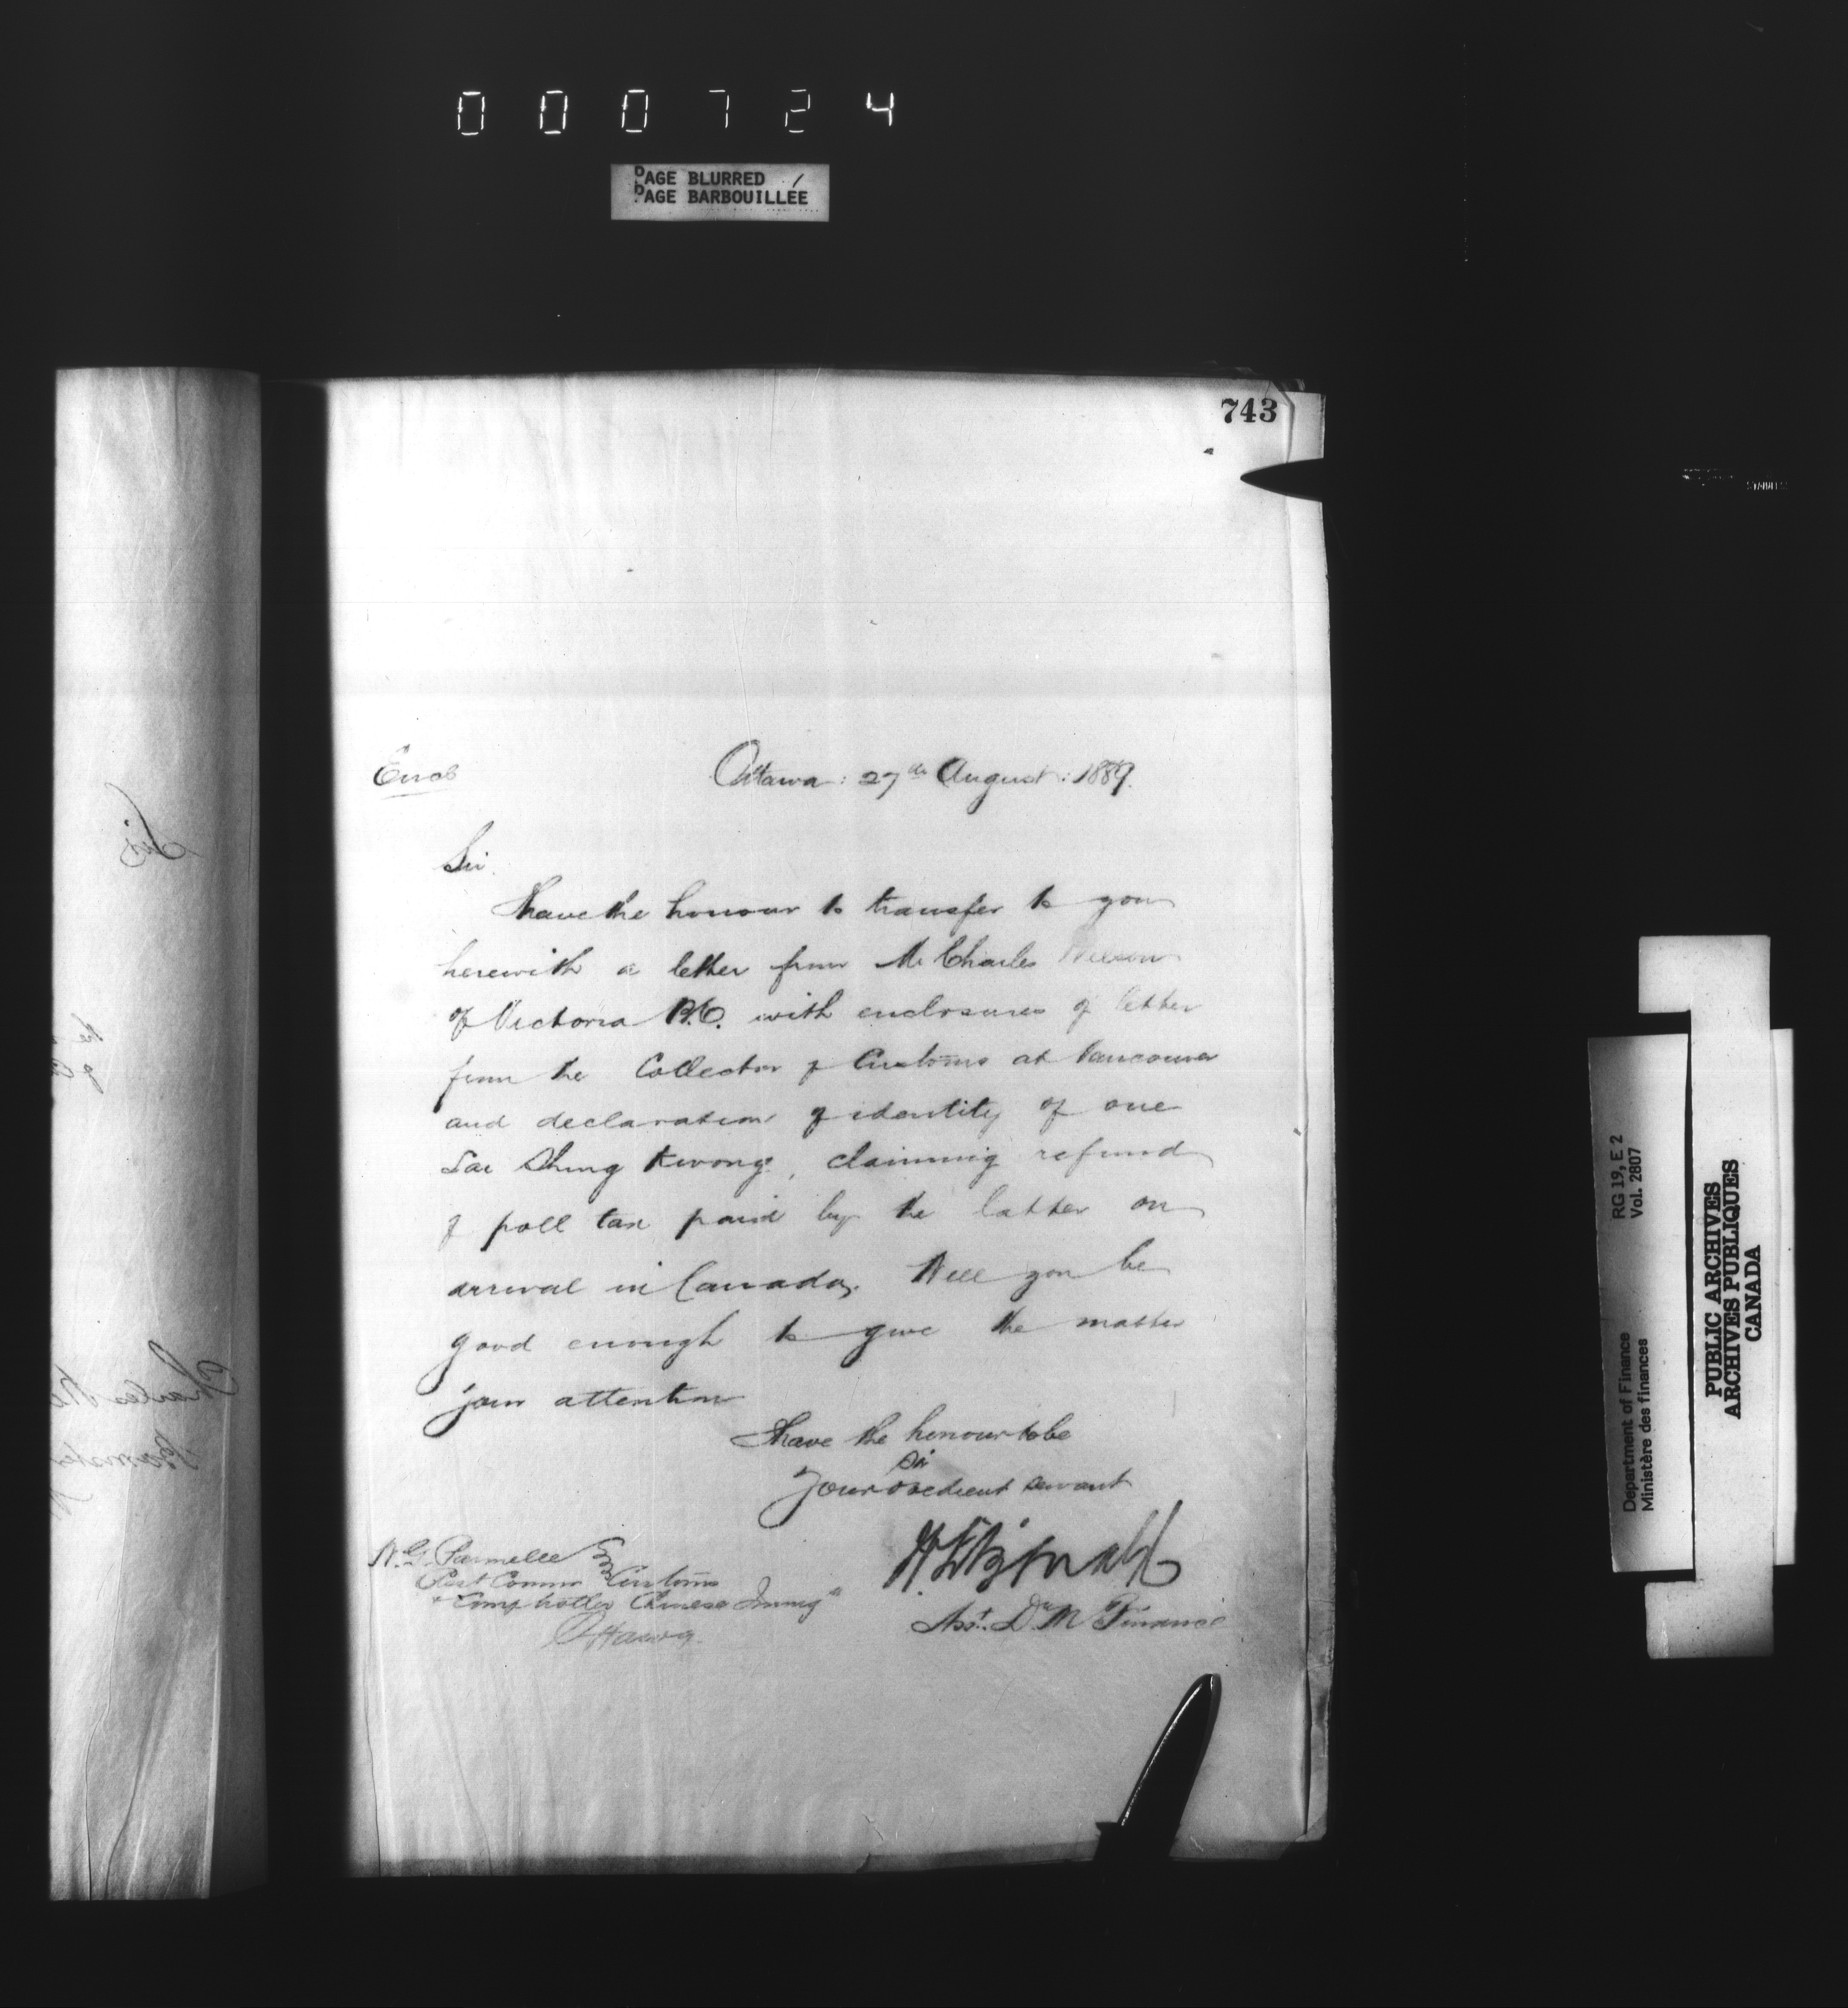 000724
PAGE BLURRED
PAGE BARBOUILLÉE
743
Encls
Ottawa: 27th August: 1889.
Sir.
I have the honour to transfer to you
herewith a letter from Mr Charles Wilson
of Victoria B.C. with enclosures of letter
from the Collector of Customs at Vancouver
and declaration of identity of one
Shing Kwong, claiming refund
of poll tax paid by the latter on
arrival in Canada. Will you be
good enough to give the matter
your attention
I have the honour to be
Sir
Your obedient servant
W. G. Parmelee Esq
Customs
& Comptroller Chinese Immign
Ottawa.
Asst. D. M Finance
RG 19, E 2
Vol. 2807
Department of Finance
Ministère des finances
PUBLIC ARCHIVES
ARCHIVES PUBLIQUES
CANADA